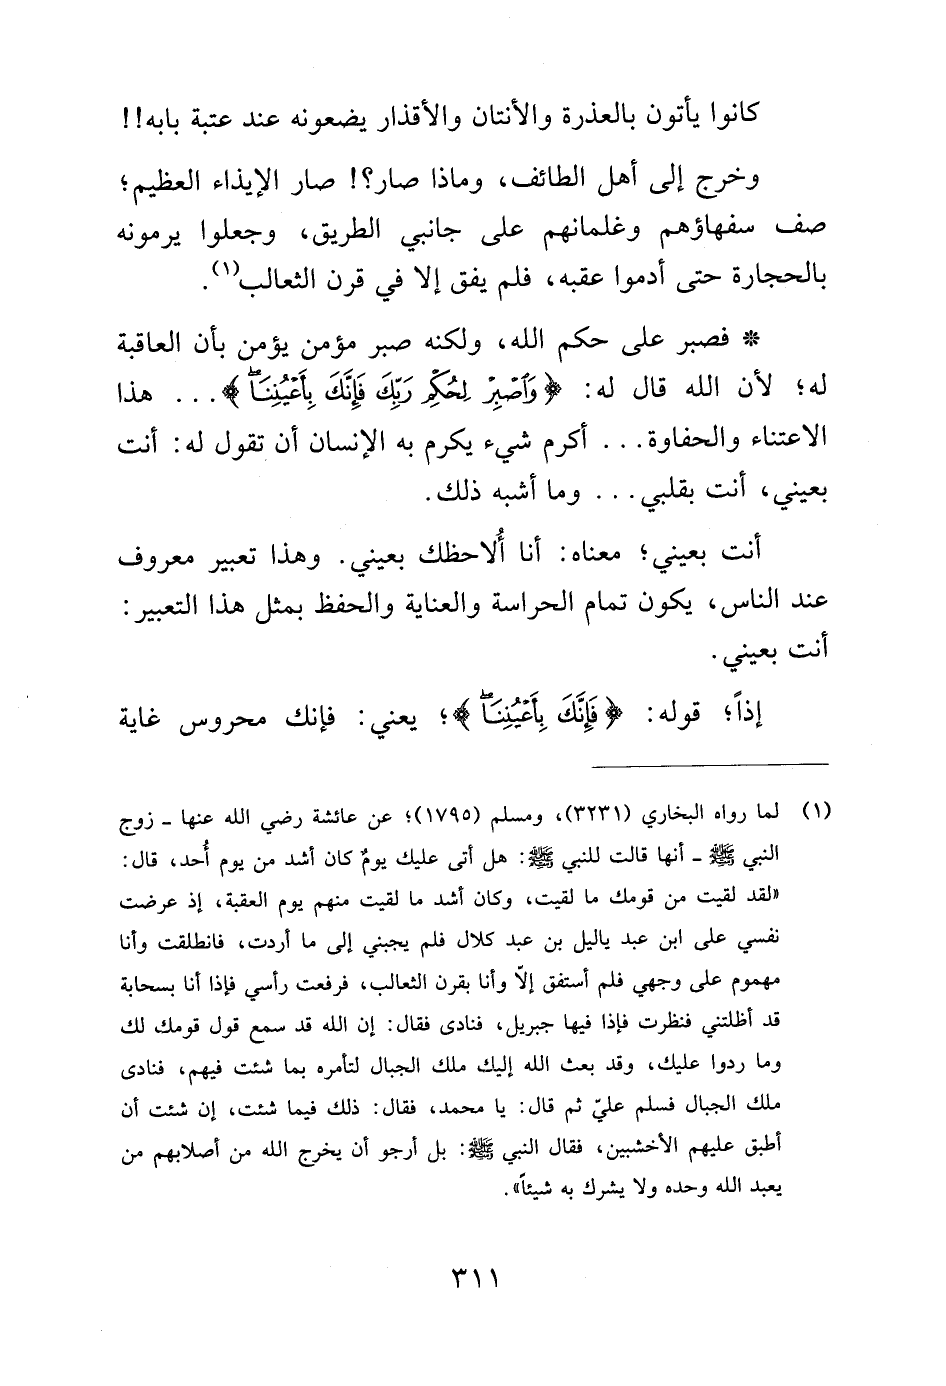 كانوا يأتون بالعذرة والأنتان والأقذار يضعونه عند عتبة بابه!!
وخرج إلى أهل الطائف، وماذا صار؟! صار الإيذاء العظيم؛
صف سفهاؤهم وغلمانهم على جانبي الطريق، وجعلوا يرمونه
بالحجارة حتى أدموا عقبه، فلم يفق إلا في قرن الثعالب(١).
* فصبر على حكم الله، ولكنه صبر مؤمن يؤمن بأن العاقبة
له؛ لأن الله قال له: ﴿وَٱصْبِرْ لِحُكْمِ رَبِّكَ فَإِنَّكَ بِأَعْيُنِنَاۖ﴾... هذا
الاعتناء والحفاوة... أكرم شيء يكرم به الإنسان أن تقول له: أنت
بعيني، أنت بقلبي... وما أشبه ذلك.
أنت بعيني؛ معناه: أنا أُلاحظك بعيني. وهذا تعبير معروف
عند الناس، يكون تمام الحراسة والعناية والحفظ بمثل هذا التعبير:
أنت بعيني.
إذاً؛ قوله: ﴿فَإِنَّكَ بِأَعْيُنِنَاۖ﴾؛ يعني: فإنك محروس غاية
(١) لما رواه البخاري (٣٢٣١)، ومسلم (١٧٩٥)؛ عن عائشة رضي الله عنها ـ زوج
النبي ﷺ ـ أنها قالت للنبي ﷺ: هل أتى عليك يومٌ كان أشد من يوم أُحد، قال:
«لقد لقيت من قومك ما لقيت، وكان أشد ما لقيت منهم يوم العقبة، إذ عرضت
نفسي على ابن عبد ياليل بن عبد كلال فلم يجبني إلى ما أردت، فانطلقت وأنا
مهموم على وجهي فلم أستفق إلاّ وأنا بقرن الثعالب، فرفعت رأسي فإذا أنا بسحابة
قد أظلتني فنظرت فإذا فيها جبريل، فنادى فقال: إن الله قد سمع قول قومك لك
وما ردوا عليك، وقد بعث الله إليك ملك الجبال لتأمره بما شئت فيهم، فنادى
ملك الجبال فسلم عليّ ثم قال: يا محمد، فقال: ذلك فيما شئت، إن شئت أن
أطبق عليهم الأخشبين، فقال النبي ﷺ: بل أرجو أن يخرج الله من أصلابهم من
يعبد الله وحده ولا يشرك به شيئاً».
٣١١